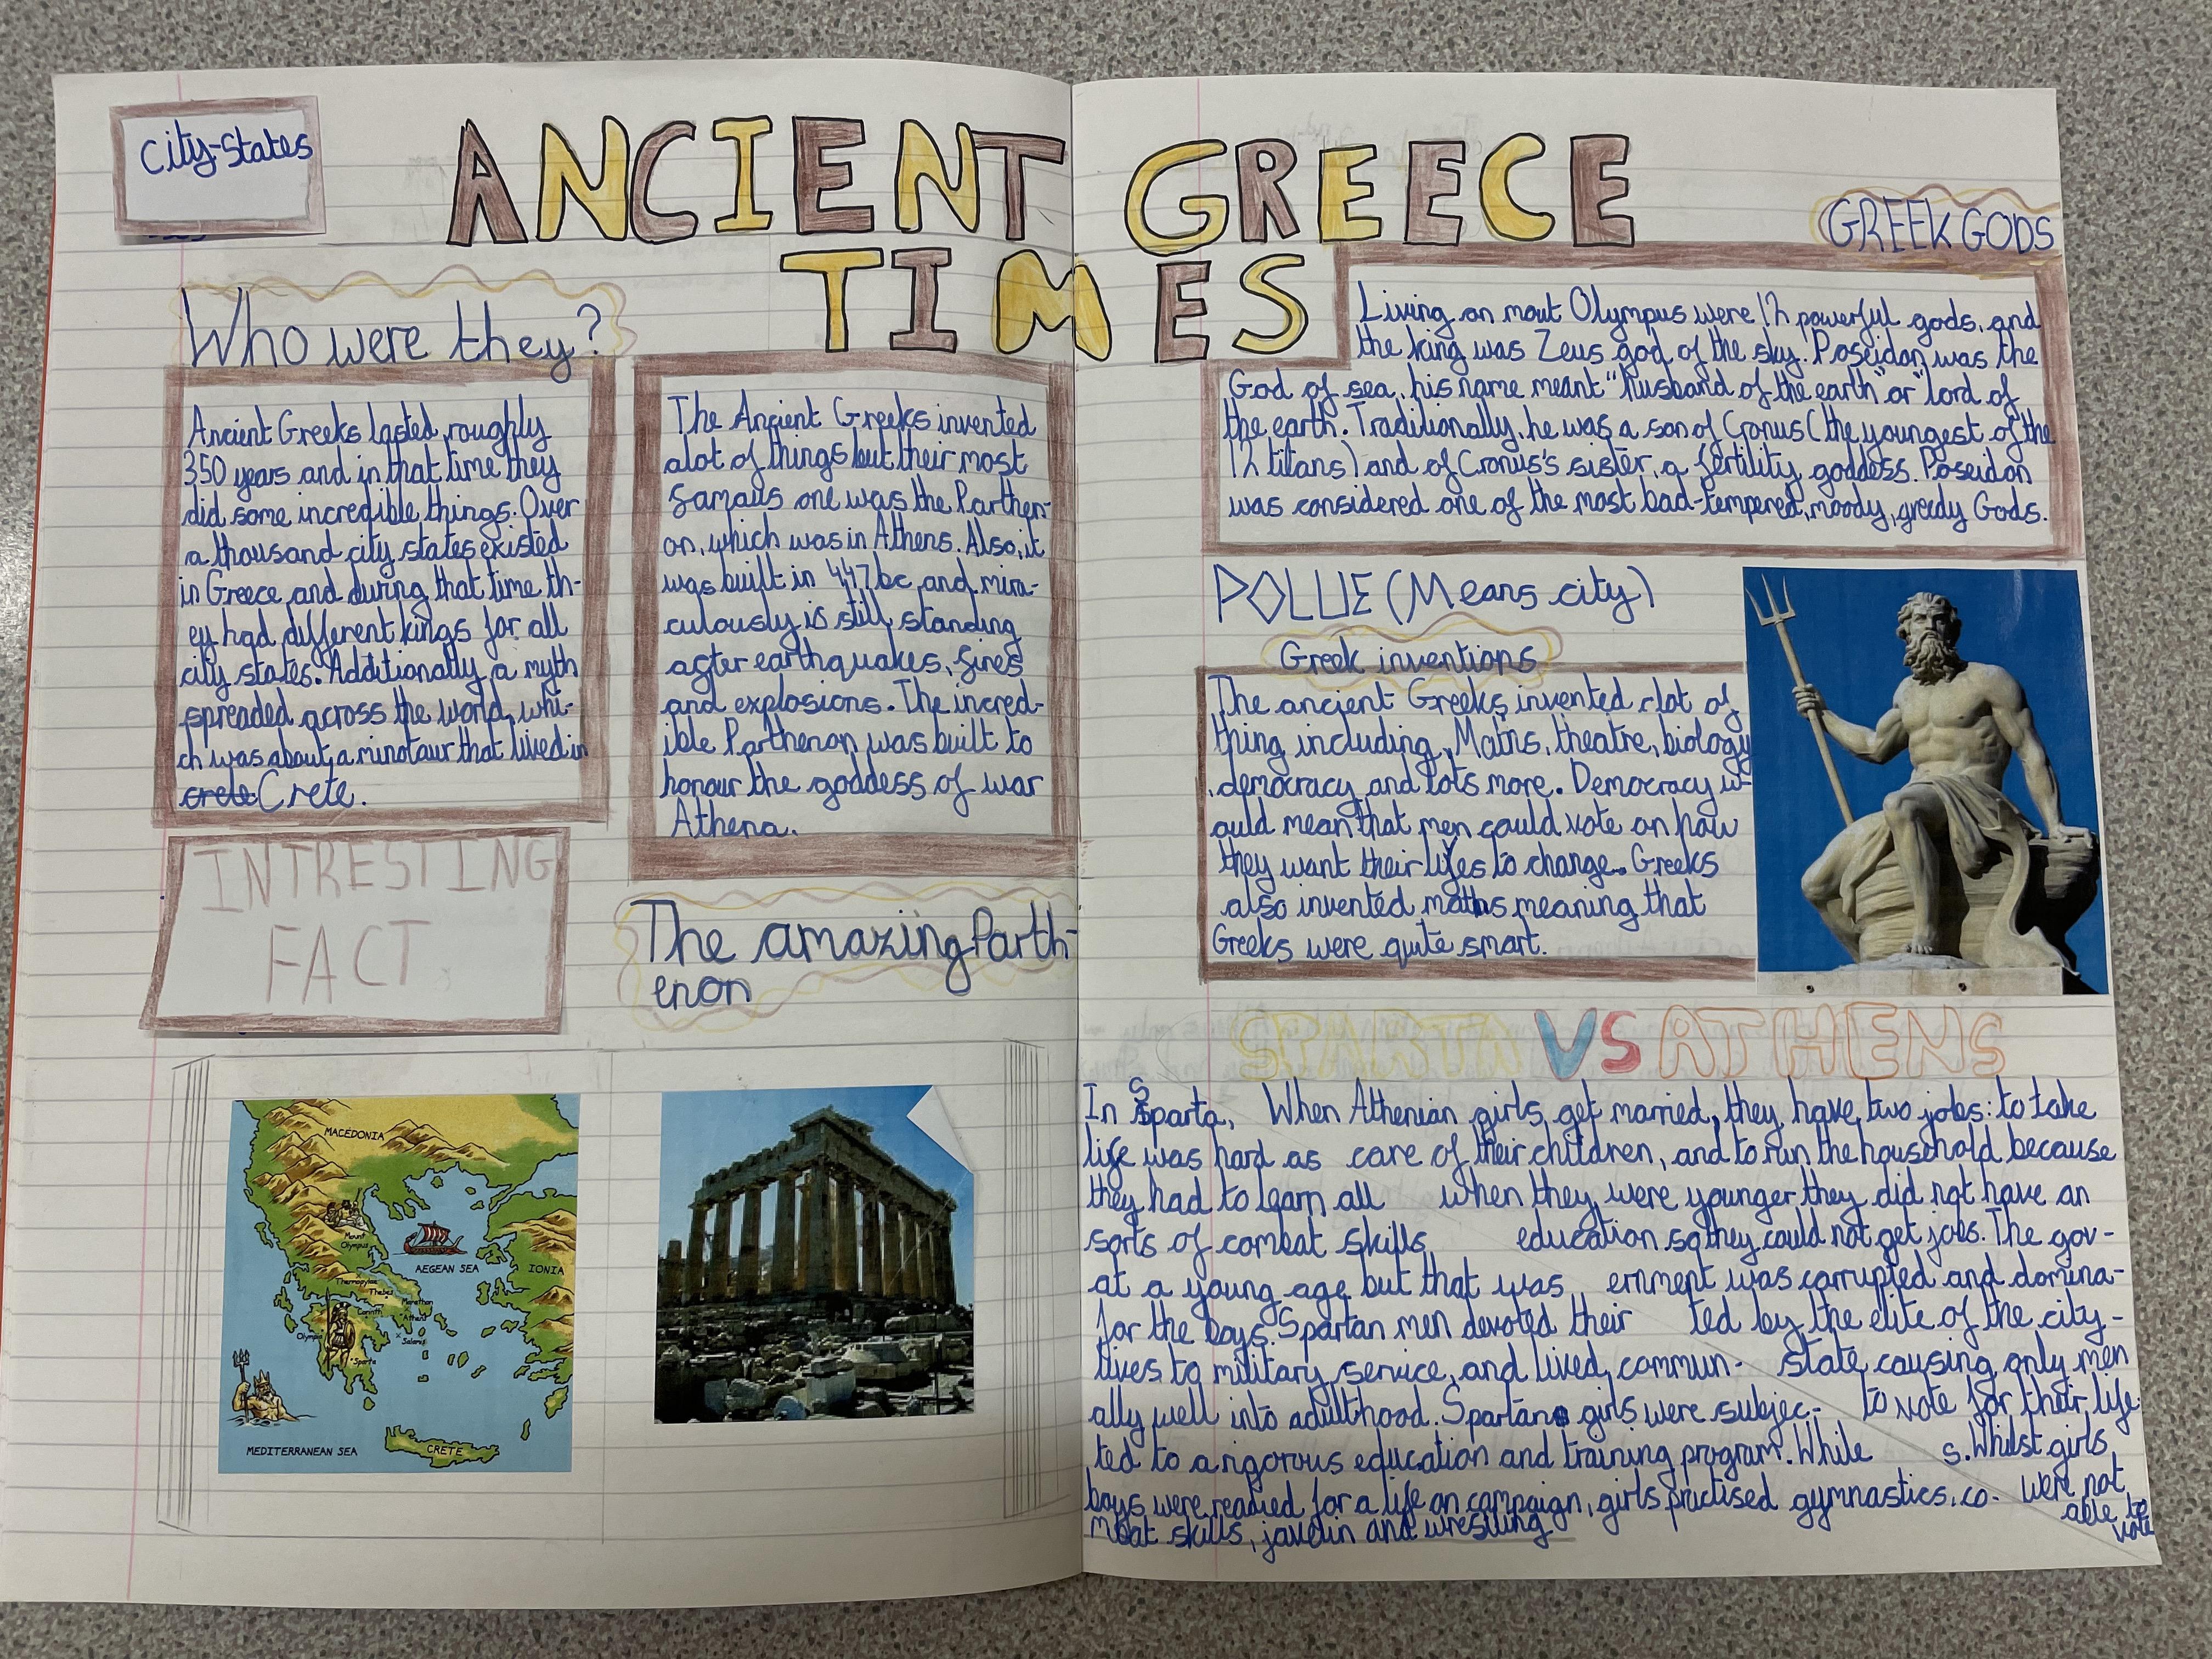 City-States
ANCIENT GREECE
TIMES
Who were they?
Ancient Greeks lasted roughly
350 years and in that time they
did some incredible things. Over
a thousand city states existed
in Greece and during that time th-
ey had different kings for all
city states. Additionally a myth
spreaded across the world, whi-
ch was about a minotaur that lived in
crete Crete.
INTRESTING
FACT
The Ancient Greeks invented
alot of things but their most
famous one was the Parthen-
on, which was in Athens. Also, it
was built in 447 bc and mira-
culously is still standing
after earthquakes, fires
and explosions. The incred-
ible Parthenon was built to
honour the goddess of war
Athena.
The amazing Parth-
enon
MACEDONIA
Mount
Olympus
AEGEAN SEA
IONIA
Thermopylae
Thebes
Marathon
Corinth
Athens
Olympia
Salamis
Sparta
MEDITERRANEAN SEA
CRETE
GREEK GODS
Living on mout Olympus were 12 powerful gods, and
the king was Zeus god of the sky. Poseidon was the
God of sea, his name meant "husband of the earth" or "lord of
the earth. Traditionally, he was a son of Cronus (the youngest of the
12 titans) and of Cronus's sister, a fertility goddess. Poseidon
was considered one of the most bad-tempered, moody, greedy Gods.
POLUE (Means city)
Greek inventions
The ancient Greeks invented alot of
thing including, Maths, theatre, biology
, democracy and lots more. Democracy w-
ould mean that men could vote on how
they want their lifes to change. Greeks
also invented maths meaning that
Greeks were quite smart.
SPARTA VS ATHENS
In Sparta,
life was hard as
they had to learn all
sorts of combat skills
at a young age but that was
for the boys. Spartan men devoted their
lives to military service, and lived commun-
ally well into adulthood. Spartan girls were subjec-
ted to a rigorous education and training program. While
boys were readied for a life on campaign, girls practised gymnastics, co-
mbat skills, javelin and wrestling
When Athenian girls get married, they have two jobs: to take
care of their children, and to run the household because
when they were younger they did not have an
education so they could not get jobs. The gov-
ernment was corrupted and domina-
ted by the elite of the city-
state causing only men
to vote for their life
s. Whilst girls
were not
able to
vote